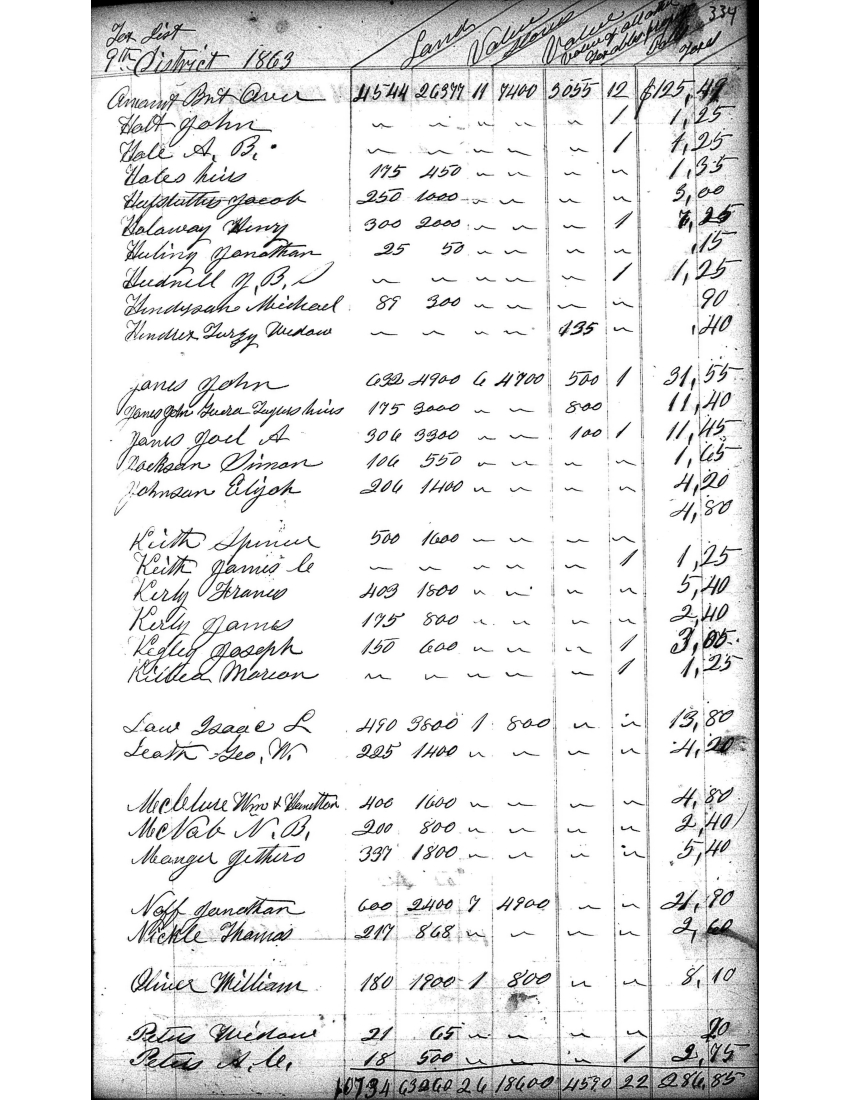 334
Tax List
9th District 1863
Land Value Slaves Value Polls Total
Amount Brt Over 4544 26377 11 7400 3055 12 $125,49
Holt John " " " " " 1 1,25
Hale A. B. " " " " " 1 1,25
Hales hirs 175 450 " " " " 1,35
Jacob 250 1000 " " " " 3,00
Holaway Henry 300 2000 " " " 1 7,25
Huling Jonathan 25 50 " " " " ,15
Hudnell J. B. " " " " " 1 1,25
Michael 89 300 " " " " 90
Hendrex Widow " " " " 135 " ,40
Jones John 632 4900 6 4700 500 1 31,55
Jones John hirs 175 3000 " " 800 11,40
Jones Joel A 306 3300 " " 100 1 11,45
Jackson Simon 106 550 " " " " 1,65
Johnson Elijah 206 1400 " " " " 4,20
4,80
Keith Spencer 500 1600 " " " "
Keith James C " " " " " 1 1,25
Kerly Francis 403 1800 " " " " 5,40
Kerly James 175 800 " " " " 2,40
Kegley Joseph 150 600 " " " 1 3,05
Marion " " " " " 1 1,25
Law Isaac L 490 3800 1 800 " " 13,80
Leath Geo. W. 225 1400 " " " " 4,20
McClure Wm & Hamilton 400 1600 " " " " 4,80
McNab N. B. 200 800 " " " " 2,40
Monger Jethero 337 1800 " " " " 5,40
Naff Jonathan 600 2400 7 4900 " " 21,90
Nickle Thomas 217 868 " " " " 2,60
Oliver William 180 1900 1 800 " " 8,10
Peters Widow 21 65 " " " " 20
Peters A. C. 18 500 " " " 1 2,75
10734 63260 26 18600 4590 22 286,85